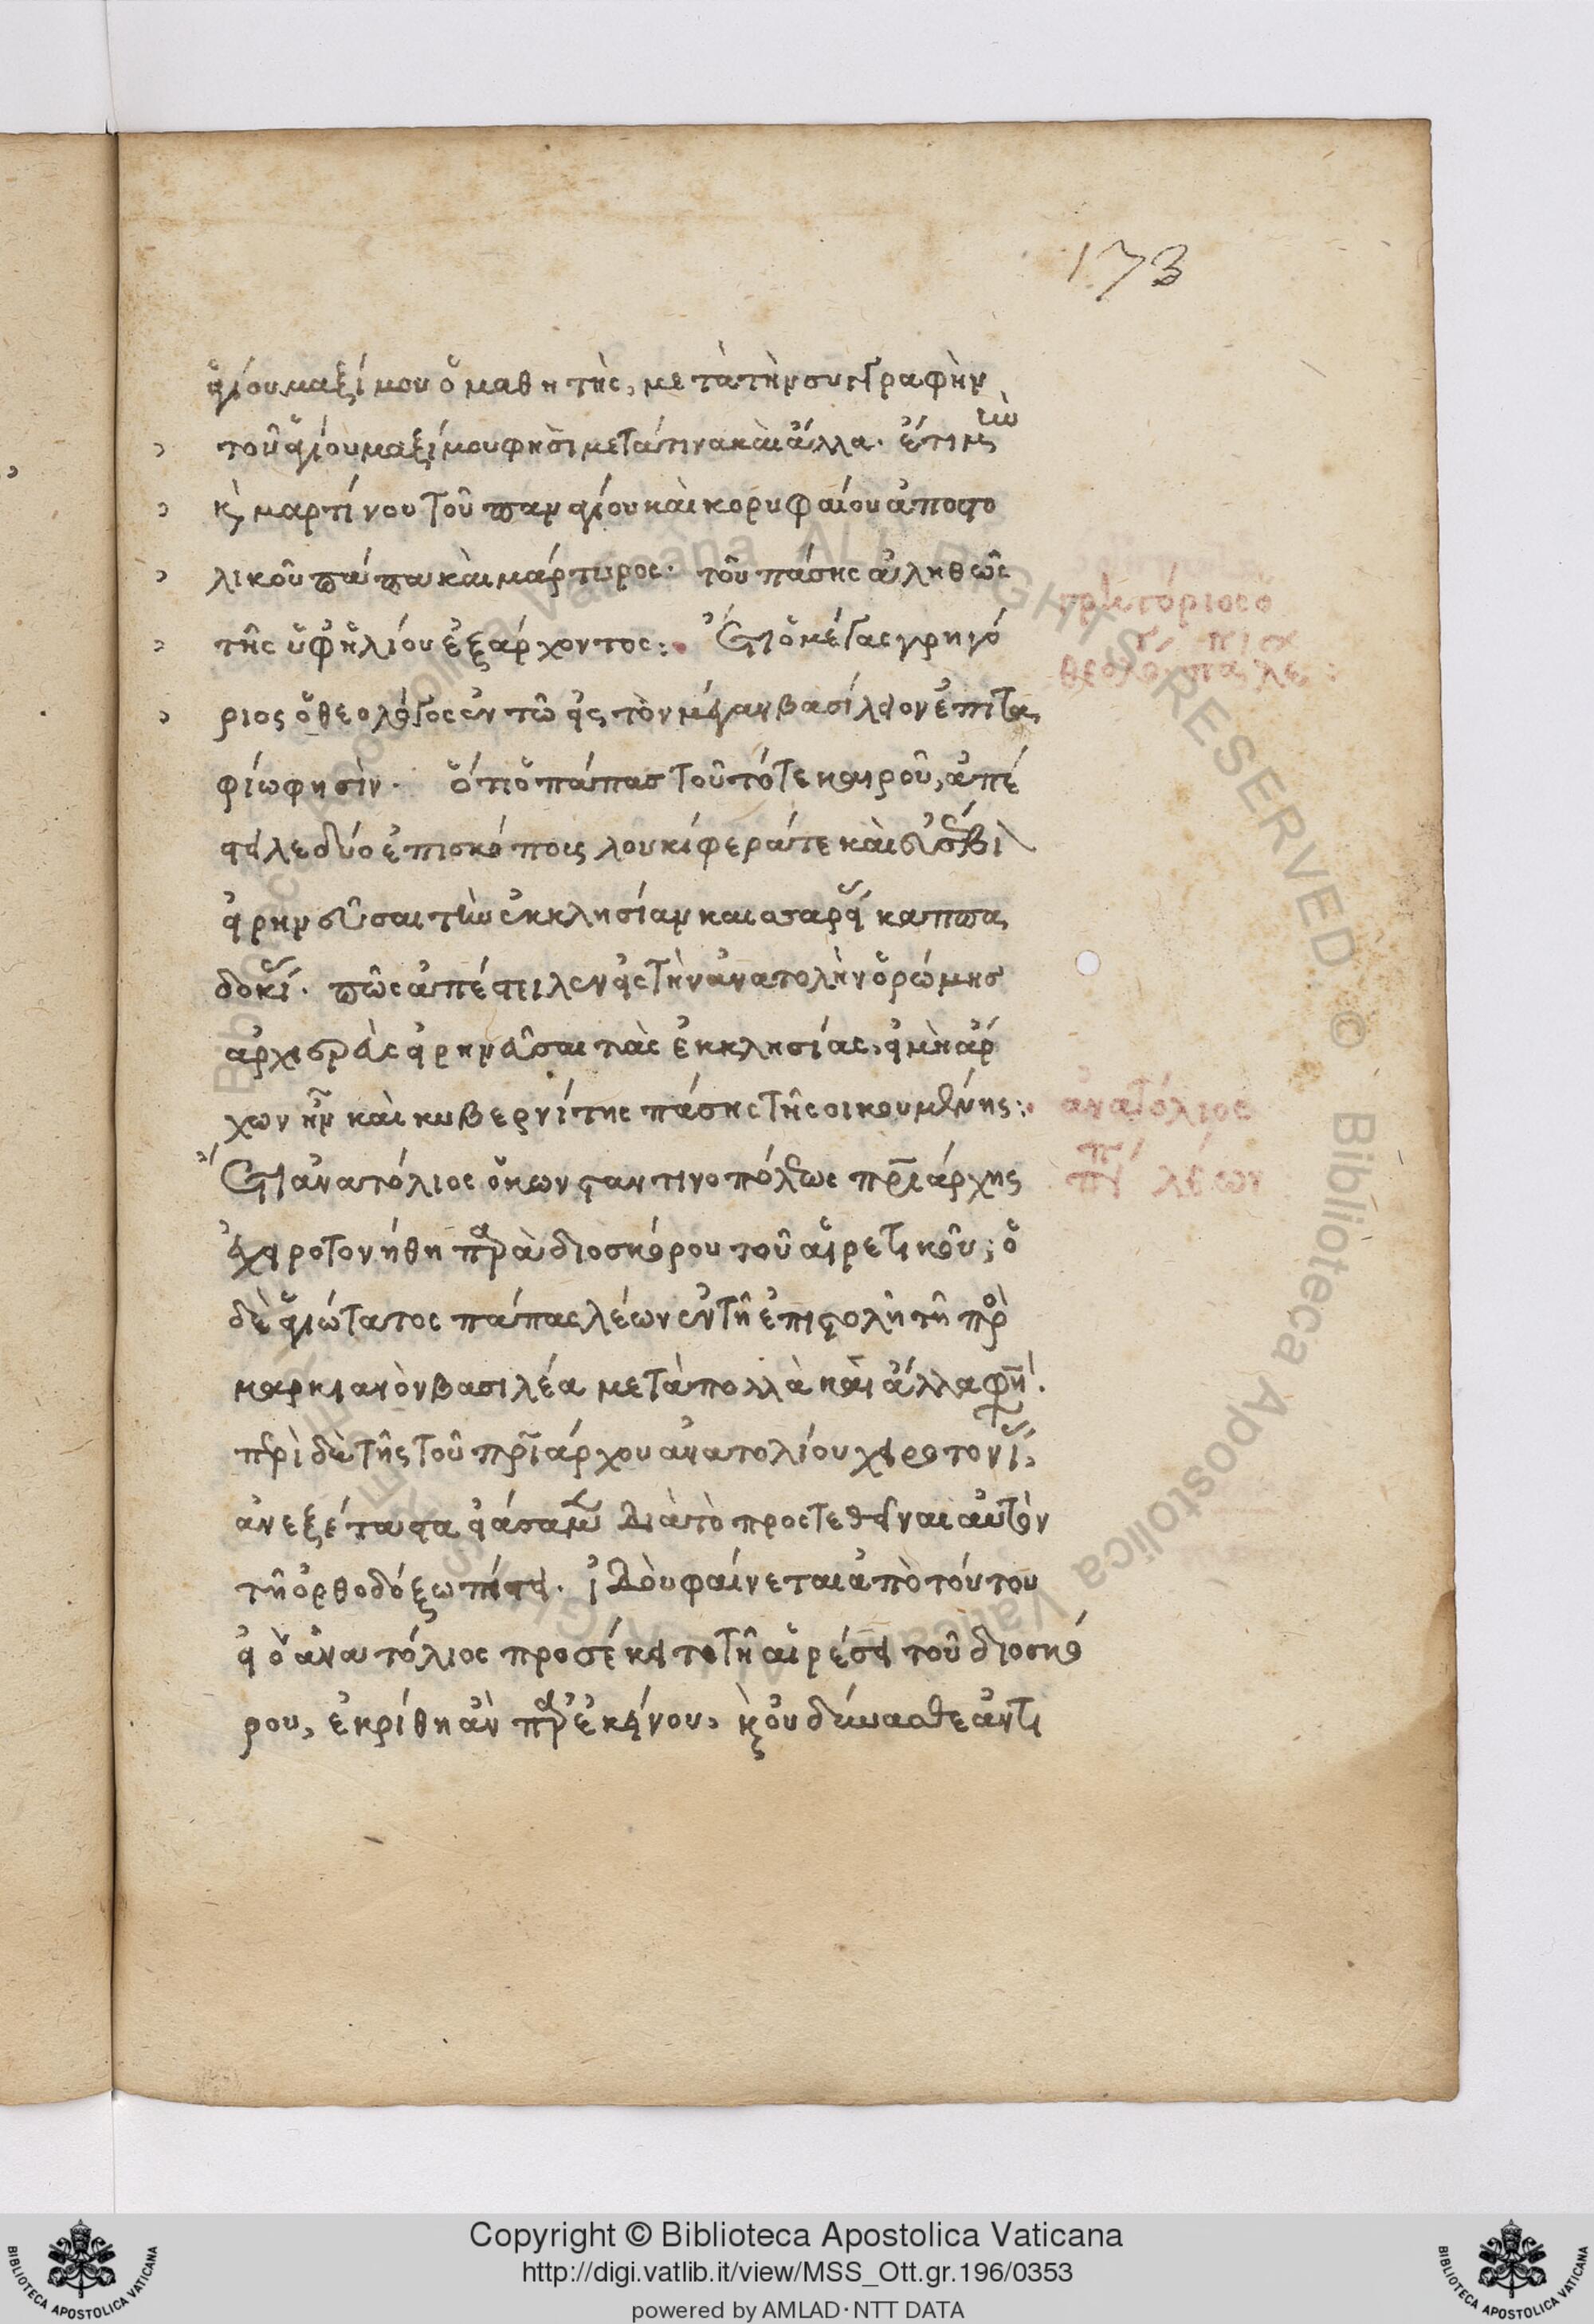 173
ἁγίου μαξίμου ὁ μαθητὴς, μετὰ τὴν συγγραφὴν
τοῦ ἁγίου μαξίμου φησὶ μετά τινα καὶ ἄλλα· ἔτι
κ μαρτίνου τοῦ παναγίου καὶ κορυφαίου ἀποστο
λικοῦ πάπα καὶ μάρτυρος· τοῦ πάσης ἀληθῶς
τῆς ὑφ ἡλίου ἐξάρχοντος: Ἔτι ὁ μέγας γρηγό
ριος ὁ θεολόγος ἐν τῶ εἰς τὸν μέγαν βασίλειον ἐπιτα
φίω φησίν· ὅτι ὁ πάπας τοῦ τότε καιροῦ, ἀπέ
στειλε δύο ἐπισκόποις λουκίφερά τε καὶ
εἰρηνεῦσαι τὴν ἐκκλησίαν και καππα
δοκί· πῶς ἀπέστειλεν εἰς τὴν ἀνατολὴν ὁ ρώμης
ἀρχιερεῖς εἰρηνεῦσαι τὰς ἐκκλησίας, εἰ μὴ ἄρ
χων ἦν καὶ κυβερνίτης πάσης τῆς οἰκουμένης:
Ἔτι ἀνατόλιος ὁ κωνσταντινοπόλεως πριάρχης
ἐχειροτονήθη παρὰ διοσκόρου τοῦ αἱρετικοῦ; ὁ
δὲ ἁγιώτατος πάπας λέων ἐν τῆ ἐπιστολῆ τῆ πρὸ
μαρκιανὸν βασιλέα μετὰ πολλὰ καὶ ἄλλα φη·
περὶ δὲ τῆς τοῦ πριάρχου ἀνατολίου χειροτονί,
ἀνεξέταστα εἰάσαμεν διὰ τὸ προστεθεῖναι αὐτὸν
τῆ ὀρθοδόξω πίστει· ἰδοὺ φαίνεται ἀπὸ τούτου
εἰ ὁ ἀνατόλιος προσέκειτο τῆ αἱρέσει τοῦ διοσκό
ρου, ἐκρίθη ἂν παρ ἐκείνου, κ οὐδήπασθε ἀντι
ἀνατόλιος
λέων
Copyright © Biblioteca Apostolica Vaticana
http://digi.vatlib.it/view/MSS_Ott.gr.196/0353
powered by AMLAD·NTT DATA
BIBLIOTECA APOSTOLICA VATICANA
BIBLIOTECA APOSTOLICA VATICANA